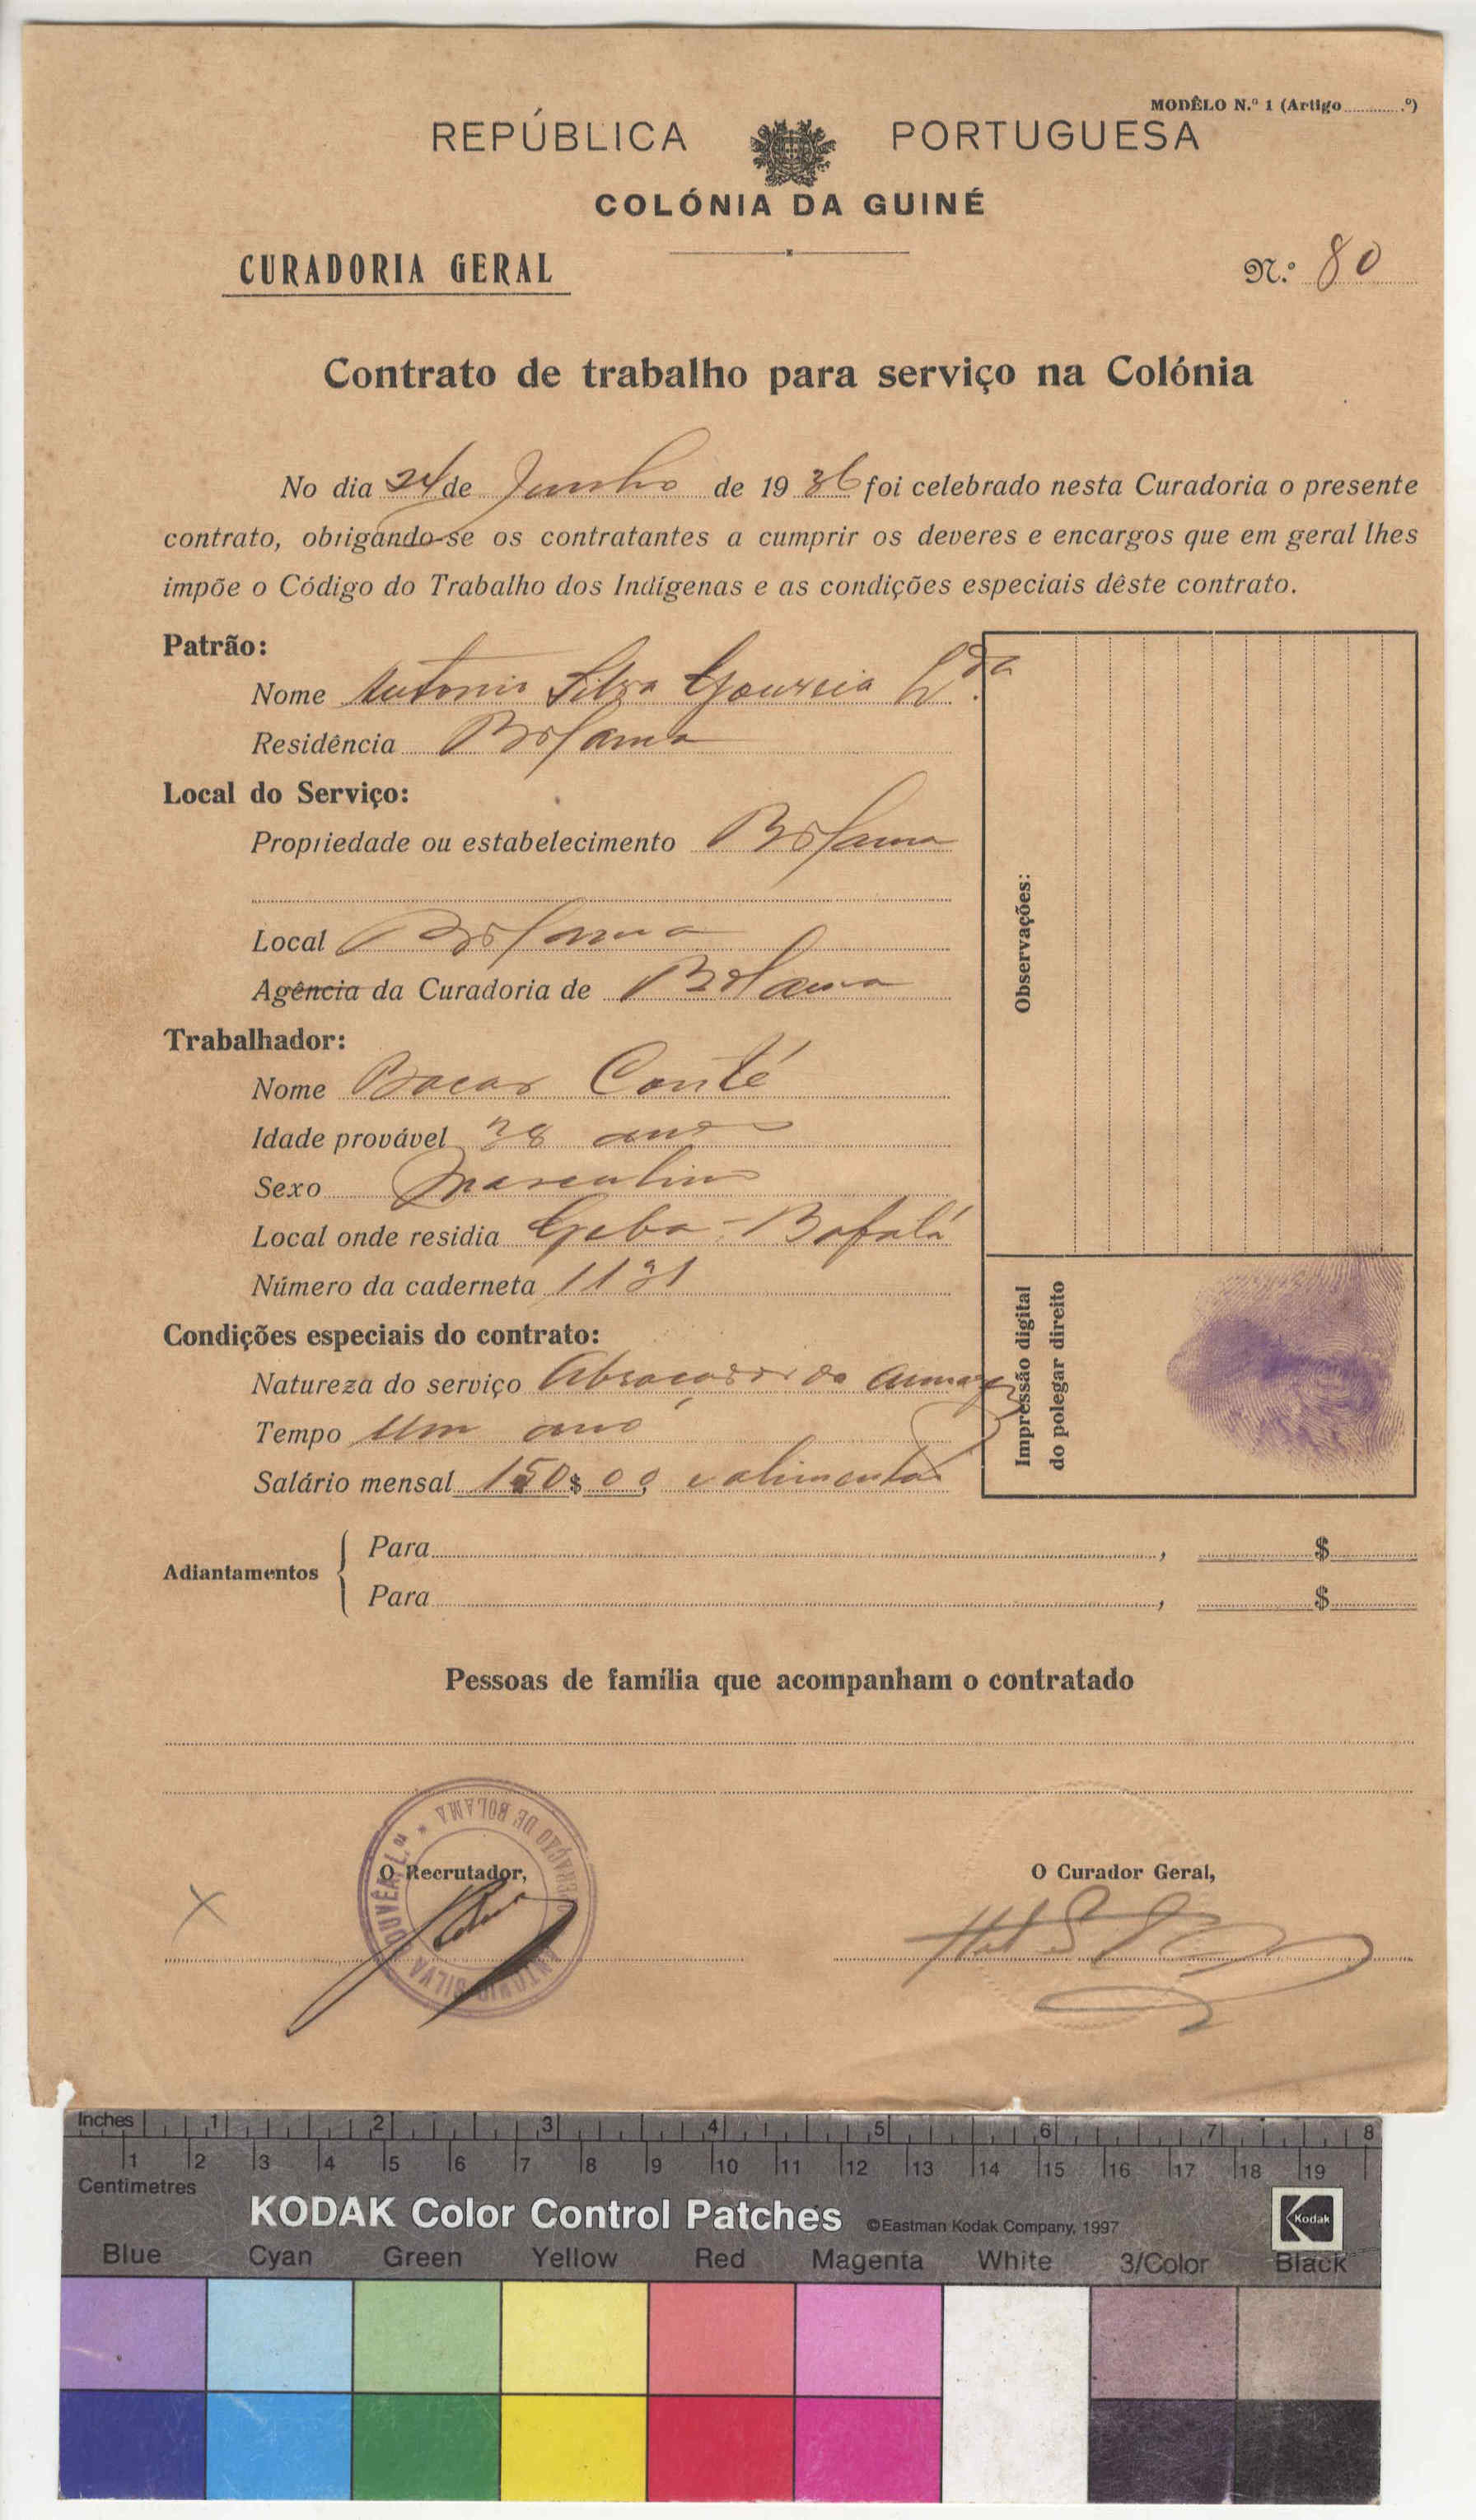 MODÊLO N.º 1 (Artigo ........º)
REPÚBLICA PORTUGUESA
COLÓNIA DA GUINÉ
CURADORIA GERAL
N.º 80
Contrato de trabalho para serviço na Colónia
No dia 24 de Junho de 1936 foi celebrado nesta Curadoria o presente
contrato, obrigando-se os contratantes a cumprir os deveres e encargos que em geral lhes
impõe o Código do Trabalho dos Indígenas e as condições especiais dêste contrato.
Patrão:
Nome Antonio Silva Gouveia Lda
Residência Bolama
Local do Serviço:
Propriedade ou estabelecimento Bolama
Local Bolama
Agência da Curadoria de Bolama
Trabalhador:
Nome Bacar Conté
Idade provável 38 anos
Sexo Masculino
Local onde residia Geba-Bafatá
Número da caderneta 1131
Condições especiais do contrato:
Natureza do serviço do
Tempo Um ano
Salário mensal 150$00, e alimentação
Observações:
Impressão digital
do polegar direito
Adiantamentos
Para , $
Para , $
Pessoas de família que acompanham o contratado
O Recrutador,
ANTONIO SILVA GOUVÊA, L.ª * DE BOLAMA *
O Curador Geral,
X
Inches 1 2 3 4 5 6 7 8
1 2 3 4 5 6 7 8 9 10 11 12 13 14 15 16 17 18 19
Centimetres
KODAK Color Control Patches ©Eastman Kodak Company, 1997
Kodak
Blue Cyan Green Yellow Red Magenta White 3/Color Black